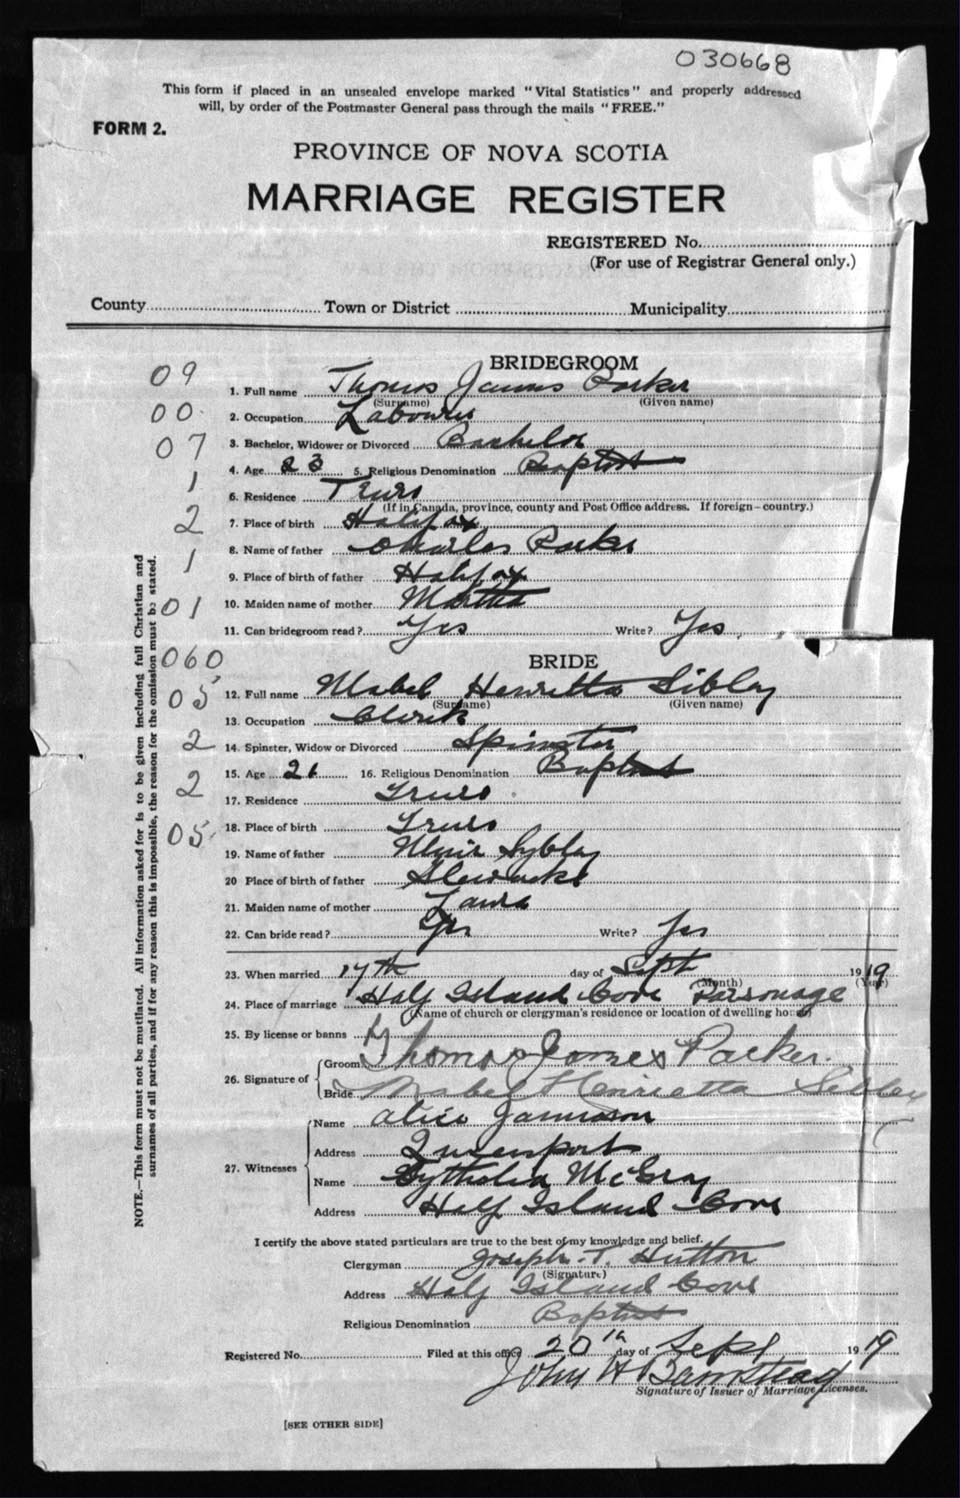 030668
This form if placed in an unsealed envelope marked "Vital Statistics" and properly addressed
will, by order of the Postmaster General pass through the mails "FREE."
FORM 2.
PROVINCE OF NOVA SCOTIA
MARRIAGE REGISTER
REGISTERED No.
(For use of Registrar General only.)
County Town or District Municipality
BRIDEGROOM
09
1. Full name Thomas James Parker
(Surname) (Given name)
00
2. Occupation Labourer
07
3. Bachelor, Widower or Divorced Bachelor
4. Age 23 5. Religious Denomination Baptist
1
6. Residence Truro
(If in Canada, province, county and Post Office address. If foreign—country.)
2
7. Place of birth Halifax
8. Name of father Charles Parker
1
9. Place of birth of father Halifax
01
10. Maiden name of mother Martha
11. Can bridegroom read? Yes Write? Yes
060
BRIDE
05
12. Full name Mabel Henrietta Sibley
(Surname) (Given name)
13. Occupation Clerk
2
14. Spinster, Widow or Divorced Spinster
15. Age 21 16. Religious Denomination Baptist
2
17. Residence Truro
05
18. Place of birth Truro
19. Name of father Sybley
20 Place of birth of father
21. Maiden name of mother Laura
22. Can bride read? Yes Write? Yes
23. When married 17th day of Sept 1919
(Month) (Year)
24. Place of marriage Half Island Cove Parsonage
(Name of church or clergyman's residence or location of dwelling house)
25. By license or banns
26. Signature of
Groom Thomas James Parker.
Bride Mabel Henrietta Sibley
27. Witnesses
Name Alice Jamieson
Address Queensport
Name McGray
Address Half Island Cove
I certify the above stated particulars are true to the best of my knowledge and belief.
Clergyman Joseph T. Hutton
(Signature)
Address Half Island Cove
Religious Denomination Baptist
Registered No. Filed at this office 20th day of Sept 1919
John H Bamstead
Signature of Issuer of Marriage Licenses.
[SEE OTHER SIDE]
NOTE.—This form must not be mutilated. All information asked for is to be given including full Christian and
surnames of all parties, and if for any reason this is impossible, the reason for the omission must be stated.